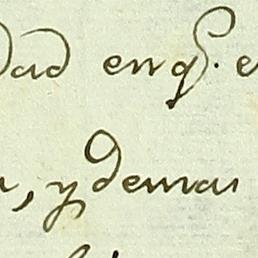 dad en q.e
, y demas